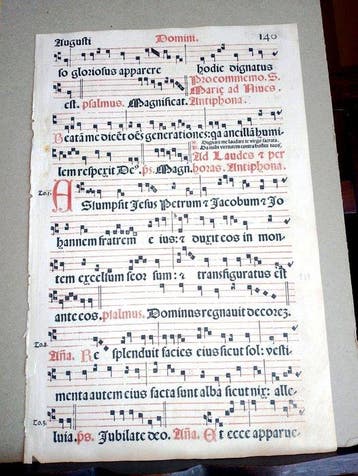 Augusti Domini. 140
so gloriosus apparere hodie dignatus
est. psalmus. Magnificat. Pro commemo. S. Marie ad Niues. Antiphona.
Beatā me dicēt oēs generationes: qa ancillā humi-
lem respexit De⁹. ps. Magn. Ad Laudes & per horas. Antiphona.
To. 1.
ASsumpsit Jesus Petrum & Jacobum & Jo
hannem fratrem eius: & duxit eos in mon-
tem excelsum seorsum: & transfiguratus est
ante eos. psalmus. Dominus regnauit decorez.
To. 2.
Aña. Resplenduit facies eius sicut sol: vesti-
menta autem eius facta sunt alba sicut nix: alle-
To. 3.
luia. ps. Jubilate deo. Aña. Et ecce apparue-